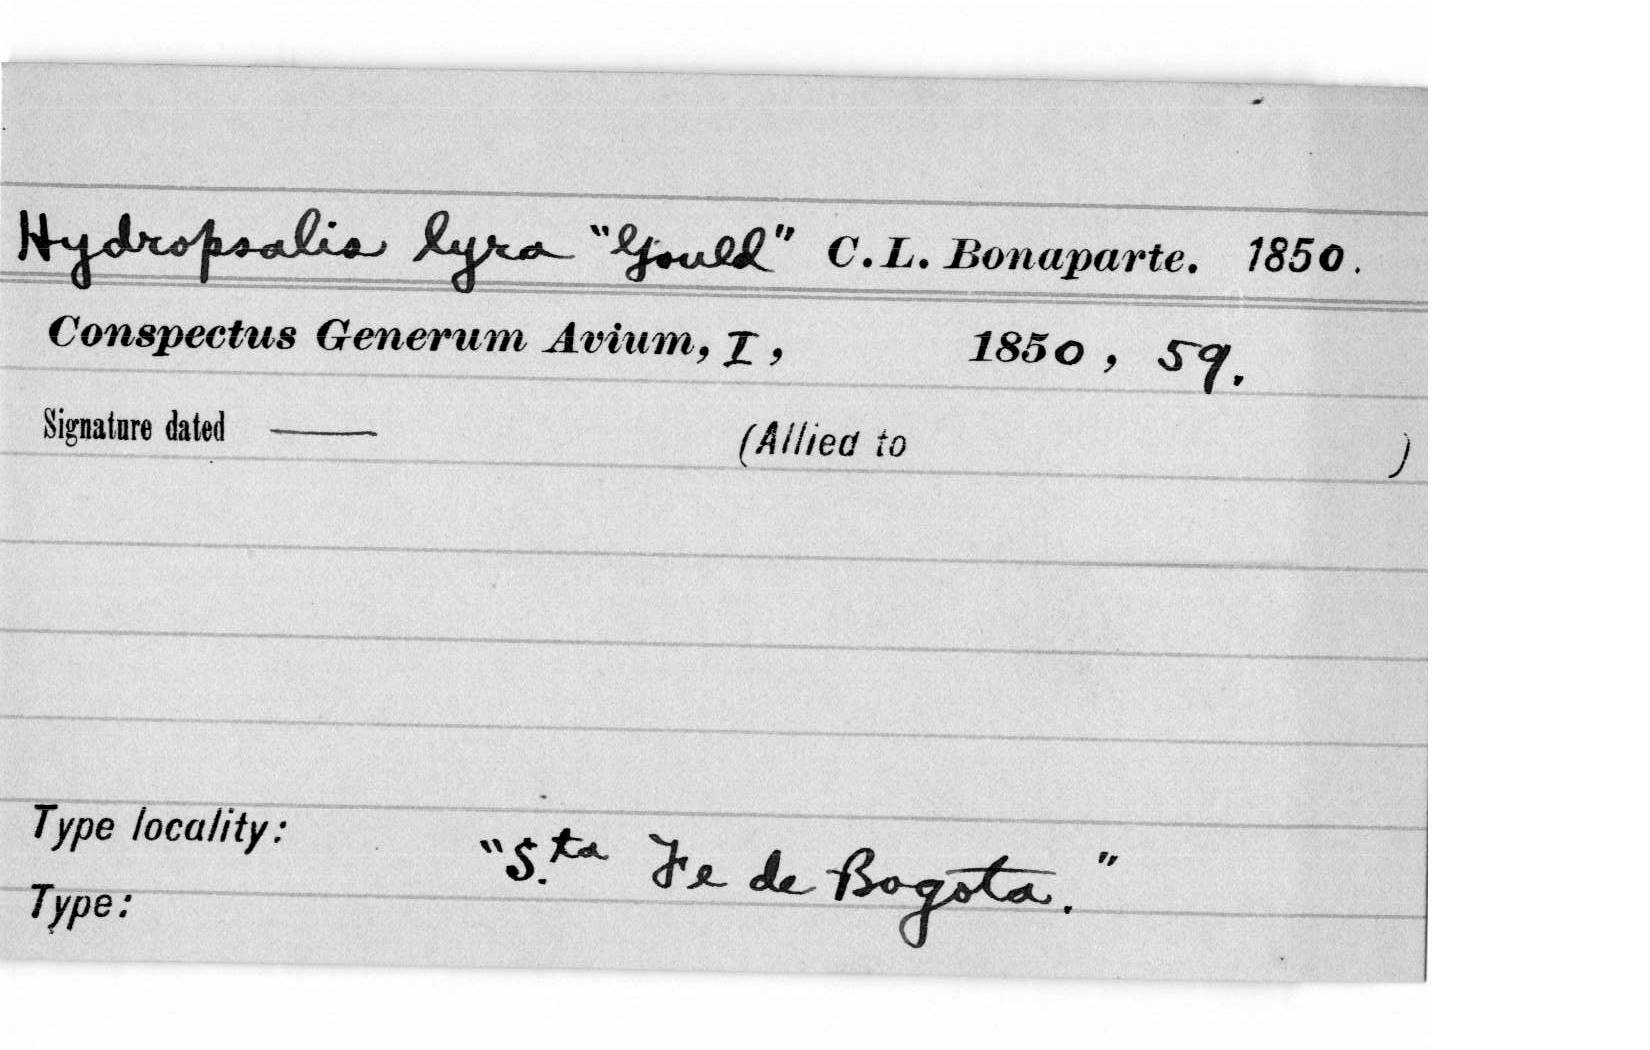 Hydropsalis lyra "Gould" C. L. Bonaparte. 1850.
Conspectus Generum Avium, I, 1850, 59.
Signature dated —— (Allied to )
Type locality: "S.ta Fe de Bogota."
Type: